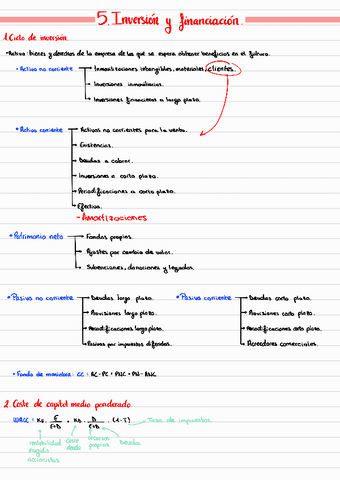 5. Inversión y financiación.
1. Ciclo de inversión.
• Activo: bienes y derechos de la empresa de los que se espera obtener beneficios en el futuro.
• Activo no corriente — Inmovilizaciones intangibles, materiales, clientes.
Inversiones inmobiliarias.
Inversiones financieras a largo plazo.
• Activo corriente — Activos no corrientes para la venta.
Existencias.
Deudas a cobrar.
Inversiones a corto plazo.
Periodificaciones a corto plazo.
Efectivo.
- Amortizaciones
• Patrimonio neto — Fondos propios.
Ajustes por cambio de valor.
Subvenciones, donaciones y legados.
• Pasivo no corriente — Deudas largo plazo.
Provisiones largo plazo.
Periodificaciones largo plazo.
Pasivos por impuestos diferidos.
• Pasivo corriente — Deudas corto plazo.
Provisiones corto plazo.
Periodificaciones corto plazo.
Acreedores comerciales.
• Fondo de maniobra: CC = AC - PC = PNC + PN - ANC
2. Coste de capital medio ponderado.
WACC = Ke · E/E+D + Kd · D/E+D · (1-T) Tasa de impuestos
rentabilidad exigida accionistas
coste deuda
recursos propios
Deuda